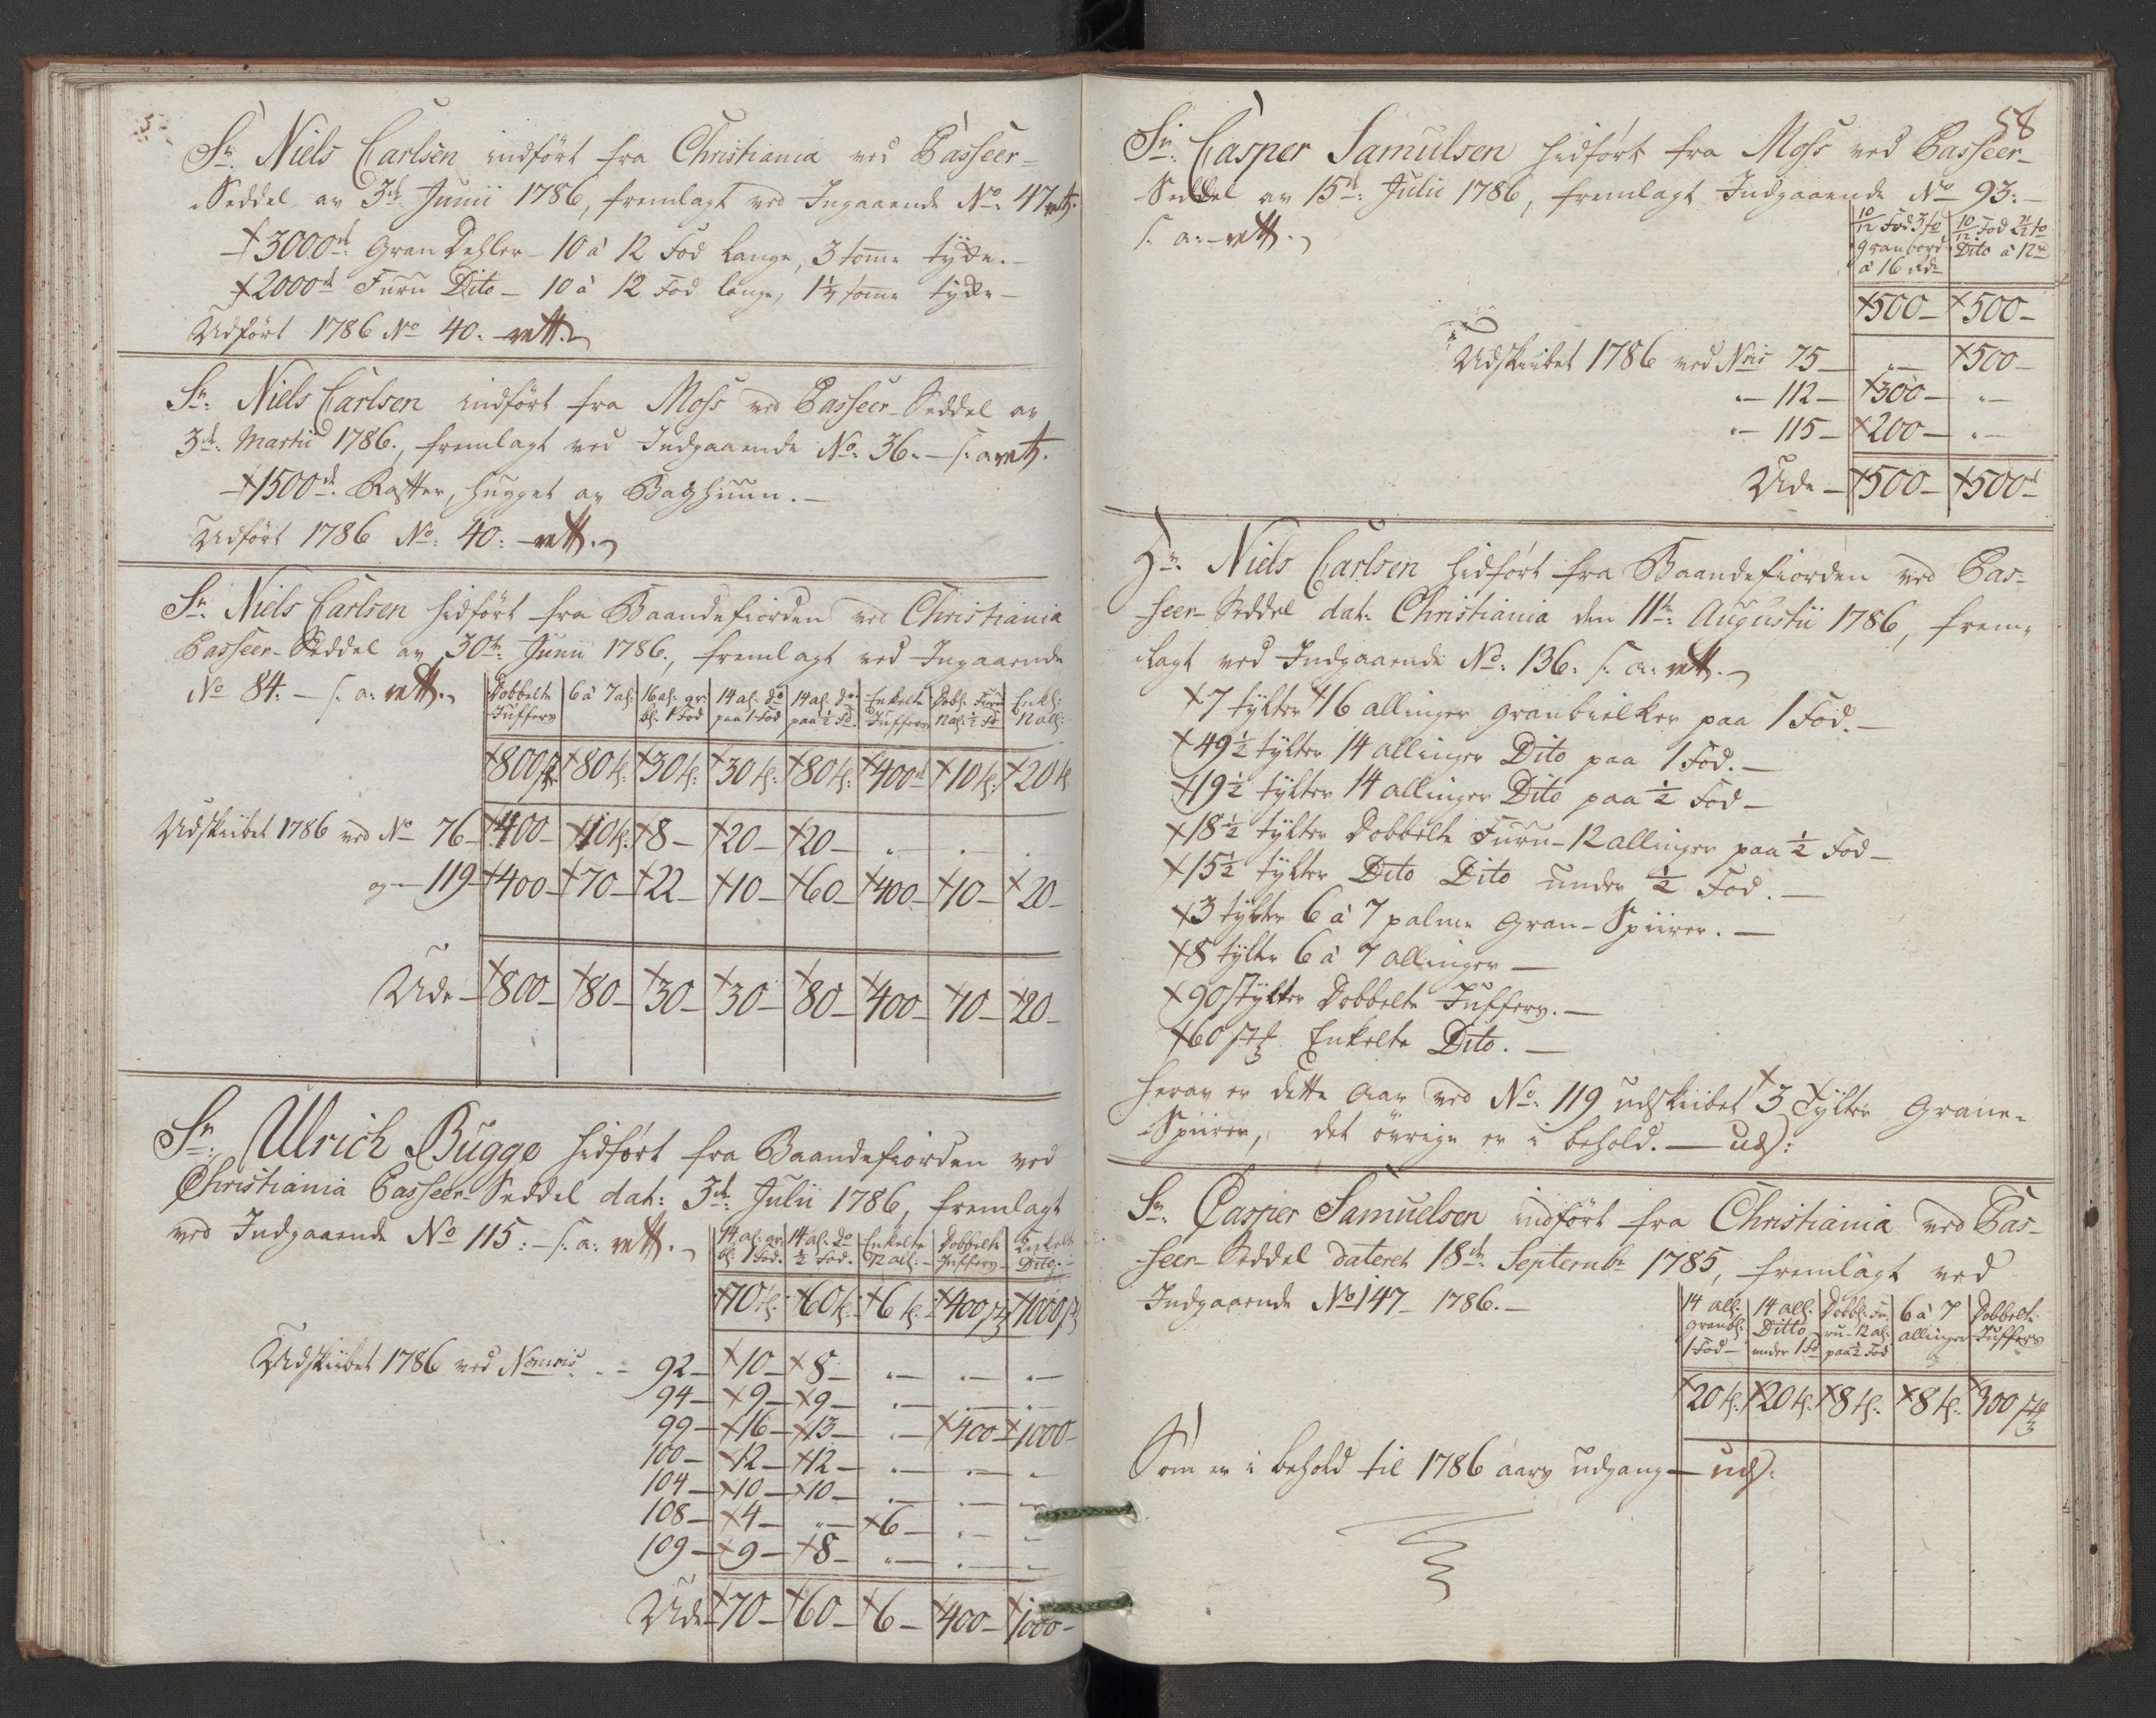 Sr. Niels Carlsen indført fra Christiania ved Passeer-
Seddel av 3de Junii 1786, fremlagt ved Ingaaende No. 47
3000de Gran Dehler - 10 à 12 Fod lange, 3 tomme tykke. -
2000de Furu Dito - 10 à 12 Fod lange, 1 1/4 tomme tykke -
Udført 1786 No 40. - rett.
Sr. Niels Carlsen indført fra Moss ved Passeer-Seddel av
3de Martii 1786., fremlagt ved Indgaaende No. 36. - s: a
1500de Raffter, hugget av Baghuun. -
Udført 1786 No. 40: - rett.
Sr. Niels Carlsen hidført fra Baandefiorden ved Christiania
Passeer-Seddel av 30te Junii 1786., fremlagt ved Ingaaende
No 84: - s: a: rett.
Dobbelte Juffers | 6 à 7 al: | 16 al: gr: bl. 1 Fod | 14 al. do paa 1 Fod | 14 al: do paa 1/2 Fd. | Enkelte Juffers | Dobl. Furu 12 al: 1/2 Fd | Enkl: 12 all:
800 | 80 t: | 30 t: | 30 t: | 80 t: | 400 | 10 t: | 20 t
Udskiibet 1786 ved No 76 - 400 - 10 t: 8 - 20 - 20 -
og - 119 - 400 - 70 - 22 - 10 - 60 - 400 - 10 - 20 -
Ude - 800 - 80 - 30 - 30 - 80 - 400 - 10 - 20 -
Sr. Ulrich Bugge hidført fra Baandefiorden ved
Christiania Passeer-Seddel dat: 3de Julii 1786, fremlagt
ved Indgaaende No 115: - s: a: rett.
14 al: gr: bl. 1 Fod. | 14 al: do 1/2 Fod. | Enkelte 12 all: | Dobbelte Juffers | Enkelte Dito
70 t: | 60 t: | 6 t: | 400 st | 1000 st
Udskiibet 1786 ved Nomris: - 92 - 10 - 8 -
94 - 9 - 9 -
99 - 16 - 13 - " - 400 - 1000 -
100 - 12 - 12 -
104 - 10 - 10 -
108 - 4 - " - 6 -
109 - 9 - 8 -
Ude - 70 - 60 - 6 - 400 - 1000 -
58
Sr: Casper Samuelsen hidført fra Moss ved Passeer-
Seddel av 15de: Julii 1786, fremlagt Indgaaende No 93: -
s: a: - rett.
10/12 Fod 3 to granbord à 16 | 10/12 Fod 2 1/2 to Dito à 12
500 - | 500 -
Udskiibet 1786 ved Nris 75 - " - 500 -
" - 112 - 300 - " -
" - 115 - 200 - " -
Ude - 500 - 500
Sr. Niels Carlsen hidført fra Baandefiorden ved Pas-
seer-Seddel dat: Christiania den 11te: Augustii 1786, frem-
lagt ved Indgaaende No: 136: s: a: rett.
7 tylter 16 allinger granbielker paa 1 Fod. -
49 1/2 tylter 14 allinger Dito paa 1 Fod. -
19 1/2 tylter 14 allinger Dito paa 1/2 Fod -
18 1/2 tylter Dobbelte Furu - 12 allinger paa 1/2 Fod -
15 1/2 tylter Dito Dito under 1/2 Fod. -
3 tylter 6 à 7 palme Gran-Spiirer. -
8 tylter 6 à 7 allinger -
90 tylter Dobbelte Juffers. -
60 Enkelte Dito. -
herav er dette Aar ved No. 119 udskiibet 3 Tylter Grane-
Spiirer, det övrige er i behold. - uds:
Sr. Casper Samuelsen indført fra Christiania ved Pas-
seer-Seddel dateret 18de: Septembr 1785, fremlagt ved
Indgaaende No 147 - 1786. -
14 all: granbl: 1 Fod - | 14 all. Ditto under 1 Fd | Dobbl: Fu- ru - 12 al: paa 1/2 Fod | 6 à 7 allinger | Dobbelte Juffers
20 t: | 20 t: | 8 t: | 8 t: | 300
Som er i behold til 1786 aars udgang - uds: